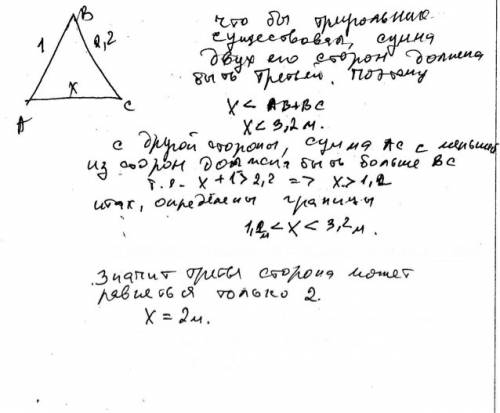 B
1
2,2
x
A
C
что бы треугольник
существовал, сумма
двух его сторон должна
быть третьей. Поэтому
x < AB+BC
x < 3,2 м.
с другой стороны, сумма AC с меньшей
из сторон должна быть больше BC
т.е. x + 1 > 2,2 => x > 1,2
итак, определены границы
1,2 м < x < 3,2 м.
Значит третья сторона может
равняться только 2.
x = 2 м.